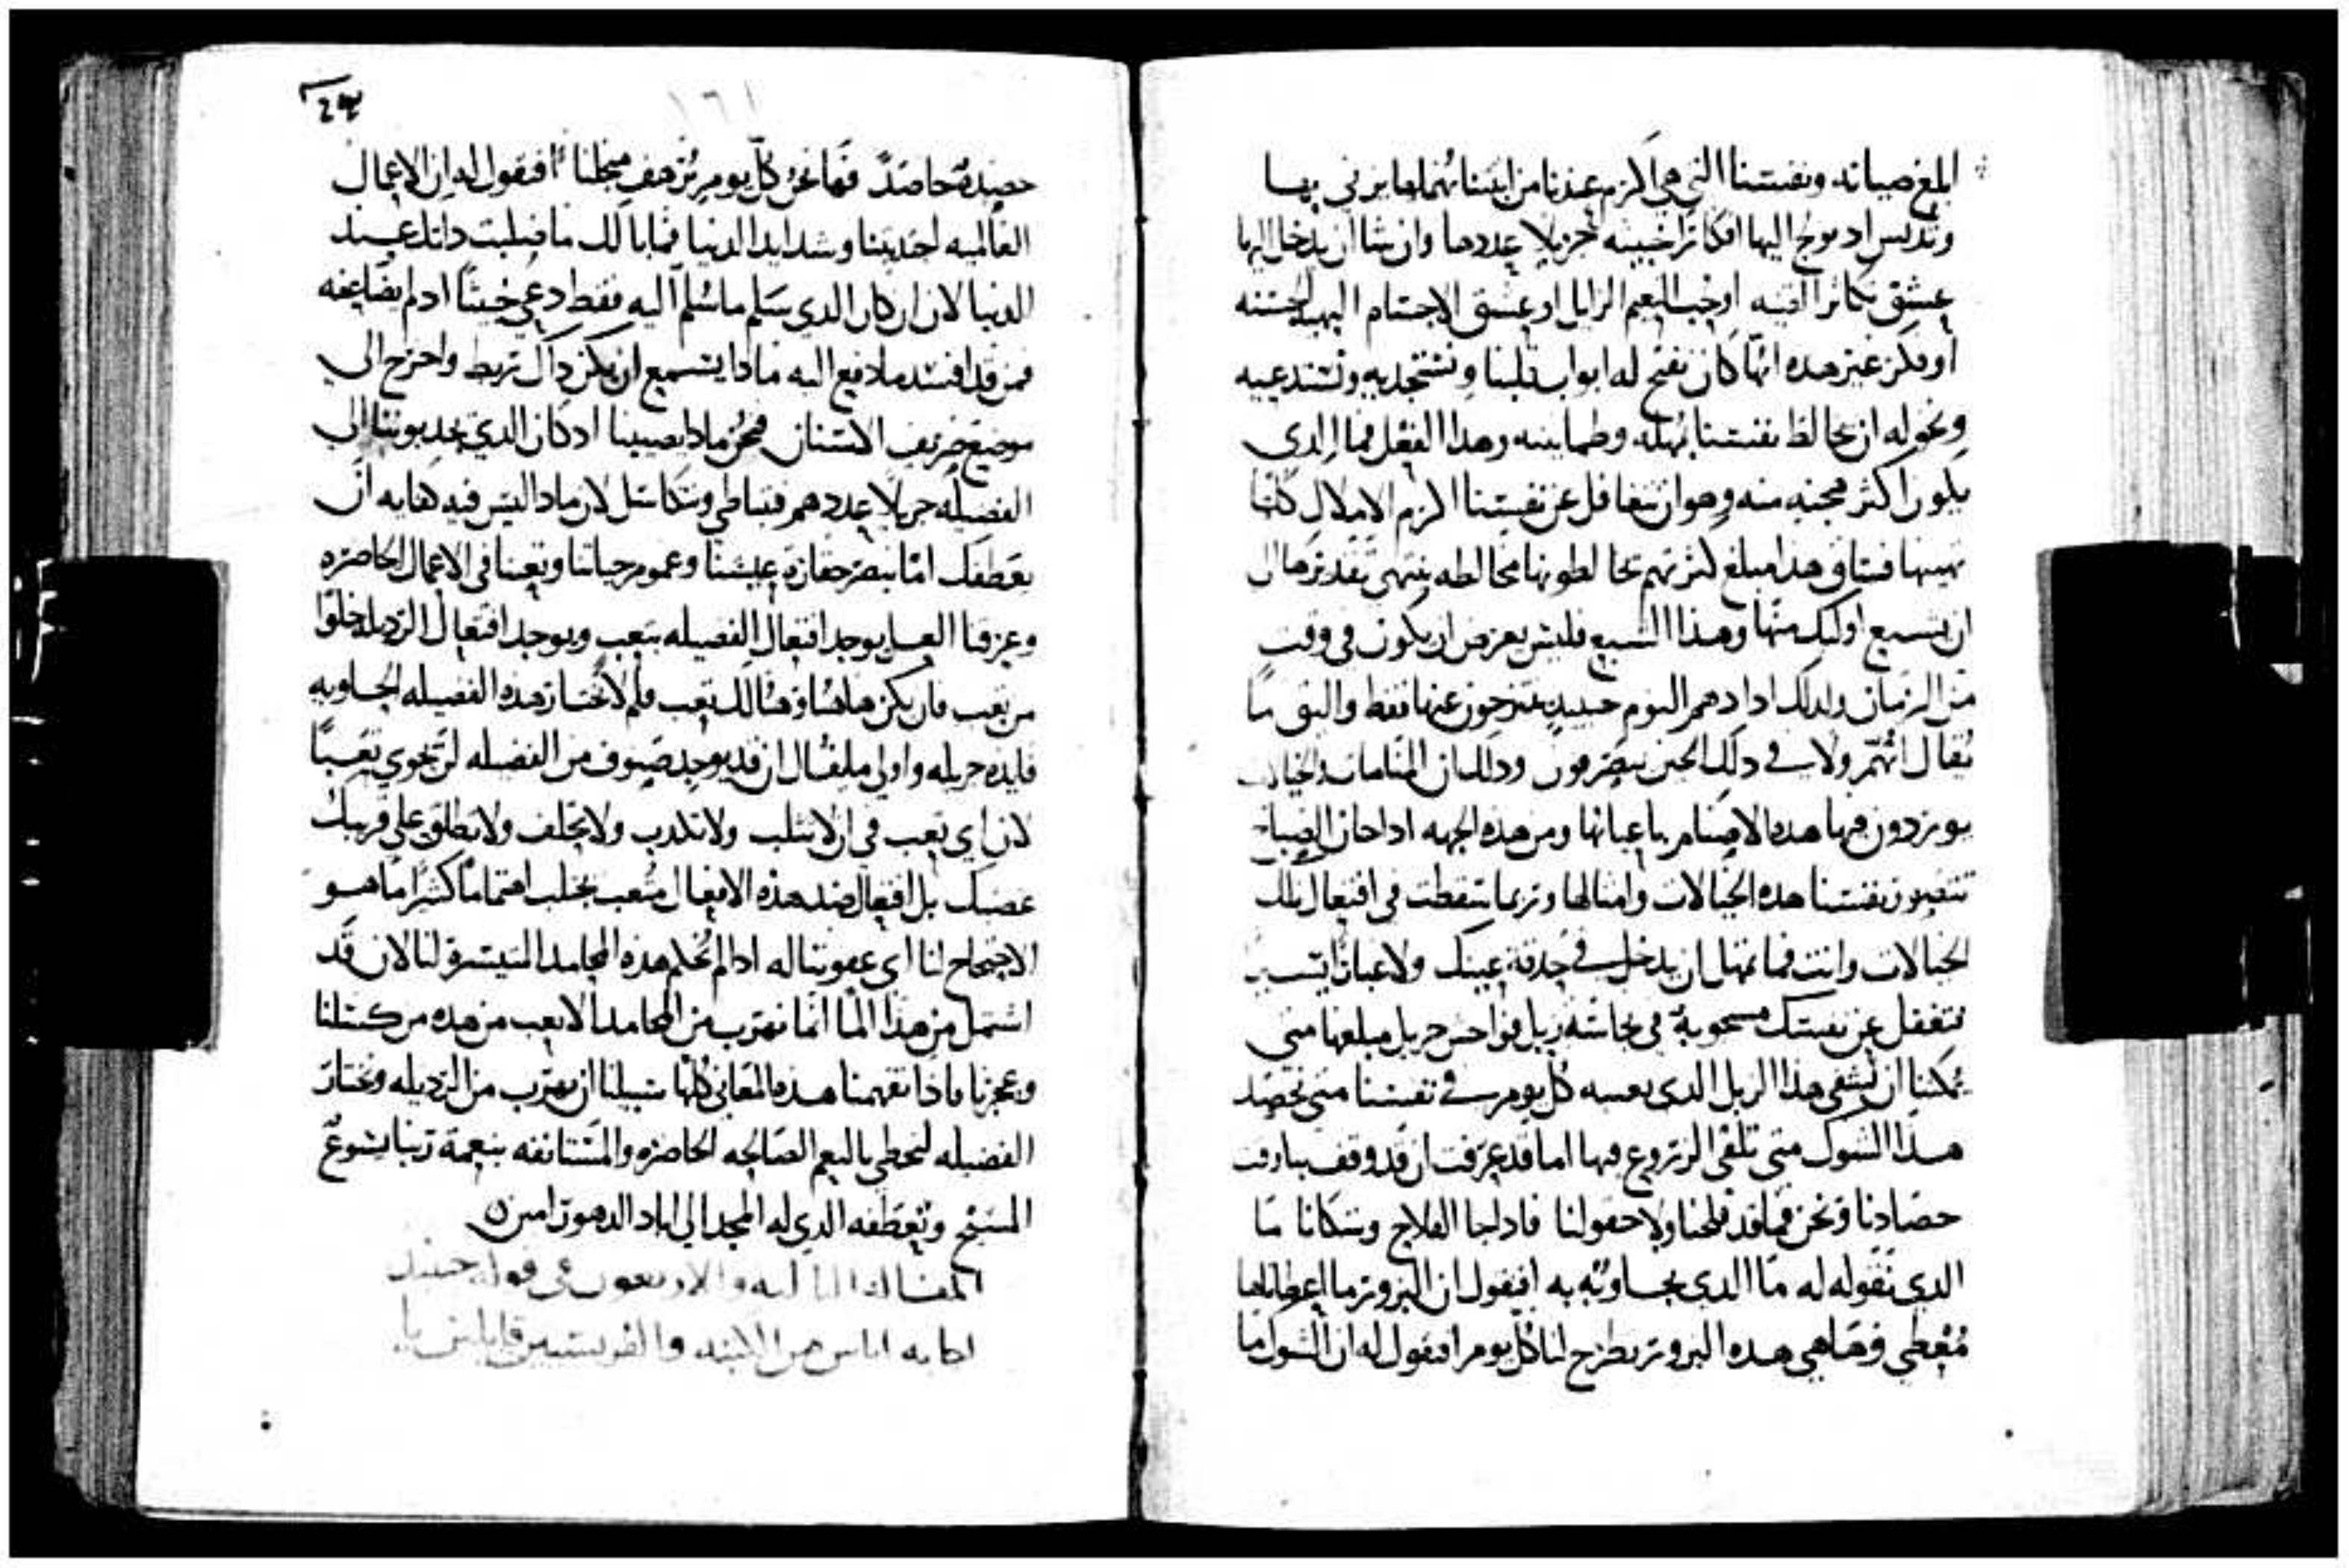 ابلغ صيانه ونفسنا التي هي اكرم عندنا من ابنتنا نهملها يزني بها
وتدنس اد يولج اليها افكارًا خبيثه جزيلا عددها وان شا ان يدخل اليها
عشق تكاثر القنيه او حب النعيم الزايل او عشق الاجسام البهيه الحسنه
او فكر غير هده ايّها كان نفتح له ابواب قلبنا ونستجديه ونستدعيه
ونخوله ان يخالط نفسنا بمهله وطمانينه وهذا الفعل فما الدي
يكون اكثر هجنه منه وهو ان نتغافل عن نفسنا اكرم الاملاك كلها
يهينها فساق هدا مبلغ كثرتهم يخالطونها مخالطه ينتهي تقديرها الى
ان يشبع اوليك منها وهذا الشبع فليس يعرض ان يكون في وقت
من الزمان ولدلك ادا دهمهم النوم حينيد ينزحون عنها فقط واليق ما
يقال انهم ولا في دلك الحين ينصرفون ودلك ان المنامات والخيالات
يوردون فيها هده الاصنام باعيانها ومن هده الجهه ادا حان الصباح
تتصور نفسنا هده الخيالات وامثالها وربما سقطت في افتعال تلك
الخيالات وانت فما تمهل ان يدخل في حدقة عينك ولا غبارًا يسير
فتغفل عن نفسك مسحوبة في نجاسة زبل فواحش جزيل مبلغها متى
يمكننا ان نشفي هذا الزبل الدي نعبيه كل يوم في نفسنا متى نحصد
هدا الشوك متى نلقي الزروع فيها اما قد عرفت ان قد وقف بنا وقت
حصادنا ونحن فما قد فلحنا ولا حقولنا فادا جا الفلاح وسكانا ما
الدي نقوله له ما الدي نجاوبه به افنقول ان البزور ما اعطانا لها
مُعطي فها هي هده البزور يطرح لنا كل يوم افنقول له ان الشوك ما

حصده حاصدً فها نحن كل يوم نرهف منجلنا افنقول له ان الاعمال
العالميه اجتدبتنا وشدايد الدنيا فما بالك ما صلبت داتك عند
الدنيا لان ان كان الدي سلم ما سُلم اليه فقط دعي خبيثًا اد لم يضاعفه
فمن قد افسد ما دفع اليه مادا يسمع ان يكن داك ربط واخرج الى
موضع صريف الاسنان فنحن مادا يصيبنا اد كان الدي يجدبوننا الى
الفضيله جزيلا عددهم فنباطي ونتكاسل لان مادا ليس فيه كفايه ان
يعطفك اما تبصر حقارة عيشنا وغموم حياتنا وتعبنا في الاعمال الحاضره
وعرقنا العسل يوجد افتعال الفضيله بتعب ويوجد افتعال الرديله خلوًا
من تعب فان يكن هاهنا وهنالك تعب فلم لا تختار هده الفضيله الحاويه
فايده جزيله واولى ما يقال ان قد يوجد صنوف من الفضيله لن تحوي تعبًا
لان اي تعب في ان لا تثلب ولا تكدب ولا تحلف ولا تطلق على قريبك
غضبك بل افتعال ضد هذه الافعال متعب يجلب اهتمامًا كثيرًا ما هو
الاحتجاح لنا اي عقوبتنا له ادا لم نحكم هده المحامد المتيسره لنا لان قد
اشتمل من هذا الما انما نهرب من المحامد الاتعب من هده من كسلنا
وعجزنا فاذا تفهمنا هده المعاني كلها سبيلنا ان نهرب من الرديله ونختار
الفضيله لنحظى بالنعم الصالحه الحاضره والمستانفه بنعمة ربنا يشوع
المسيح وتعطفه الدي له المجد الى اباد الدهور امين
المقاله التاليه والاربعون في قوله حينيد
اجابه اناس من الكتبه والفريسيين قايلين يا